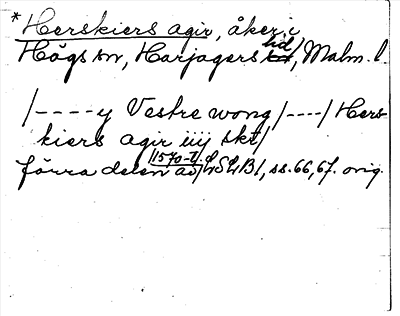 *Herskiers agir, åker, i
Högs sn, Harjagers hd, Malm. l.
/----y Vestre wong /----/ Hers-
kiers agir iiij skt/
förra delen av 1570-t. LSLB1, ss. 66, 67. orig.